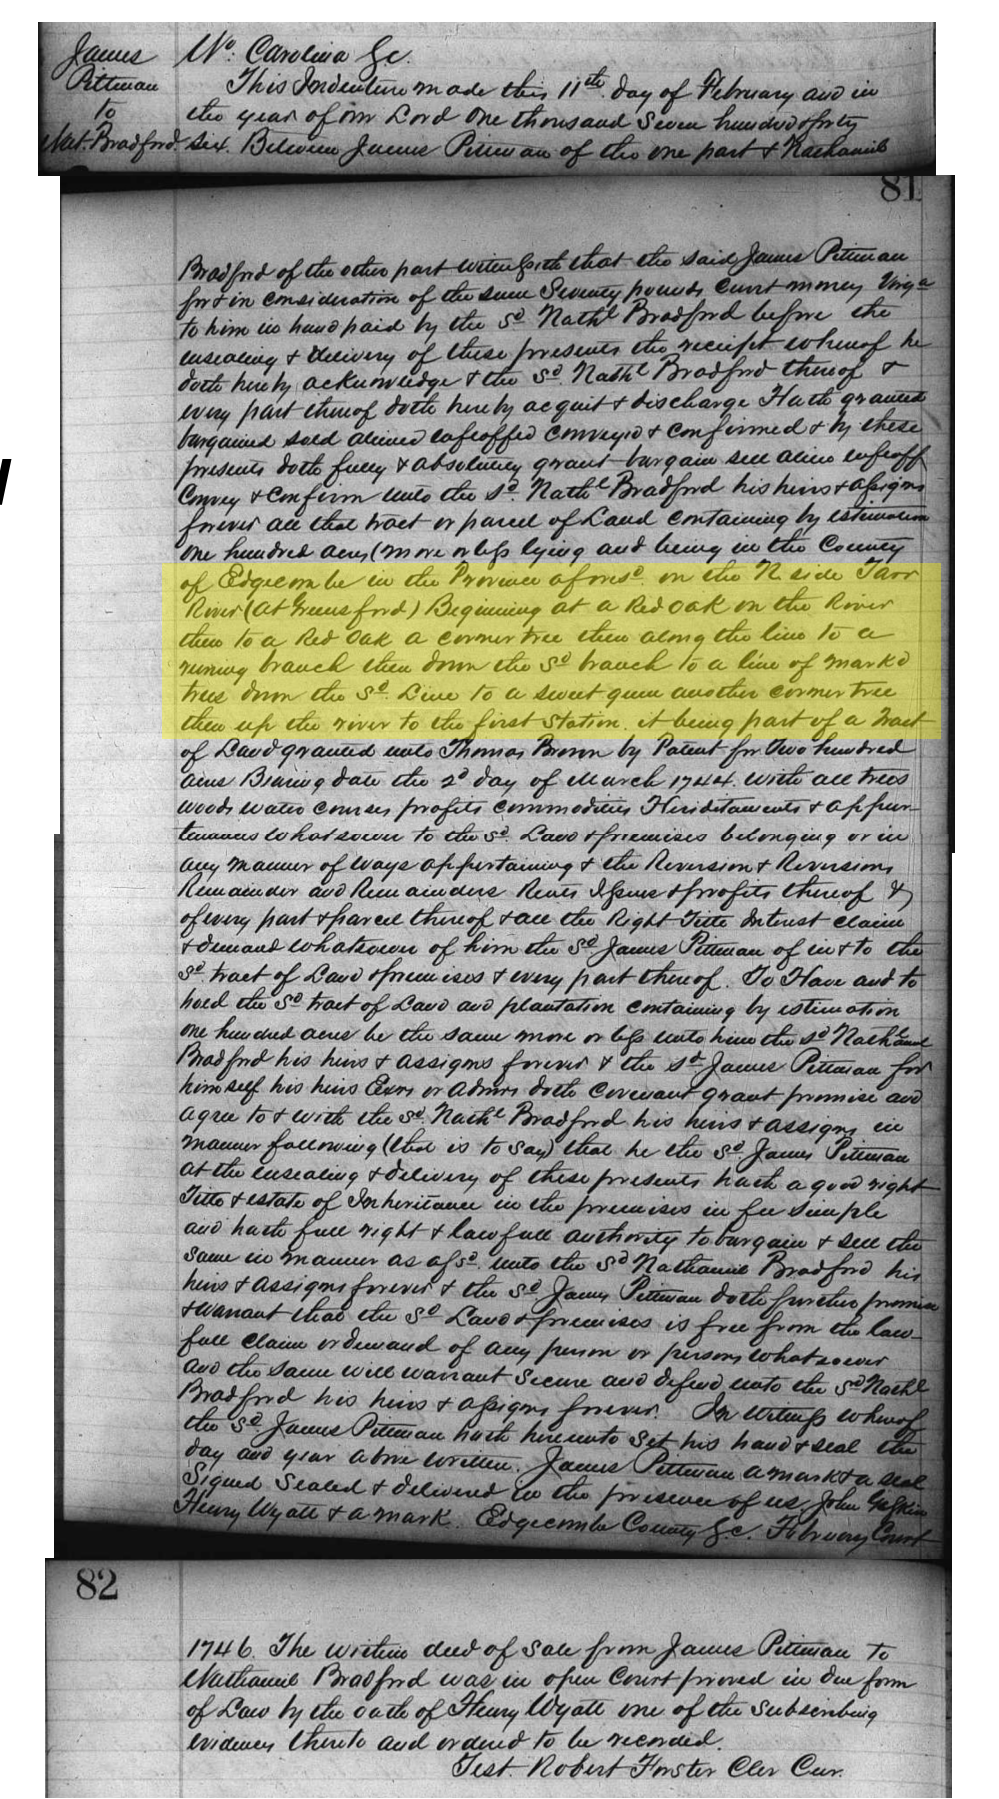 James
Pittman
to
Nat. Bradford
No. Carolina &c.
This Indenture made this 11th day of February and in
the year of our Lord One thousand Seven hundred & forty
six. Between James Pittman of the one part & Nathaniel
81
Bradford of the other part Witnesseth that the said James Pittman
for & in consideration of the sum Seventy pounds Curnt money Virga
to him in hand paid by the Sd Nathl Bradford before the
ensealing & delivery of these presents the receipt whereof he
doth hereby acknowledge & the Sd Nathl Bradford thereof &
every part thereof doth hereby acquit & discharge Hath granted
bargained sold aliened enfeoffed conveyed & confirmed & by these
presents doth fully & absolutely grant bargain sell alien enfeoff
Convey & Confirm unto the Sd. Nathl Bradford his heirs & assigns
forever all that tract or parcel of Land containing by estimation
one hundred acres (more or less lying and being in the County
of Edgecombe in the Province aforesd. on the N. side Tarr
River (at Greensford) Beginning at a Red Oak on the River
then to a Red Oak a corner tree then along the line to a
runing branch then down the Sd branch to a line of markd
trees down the Sd. Line to a sweet gum another corner tree
then up the river to the first Station. it being part of a Tract
of Land granted unto Thomas Brown by Patent for two hundred
acres Bearing date the 2d day of March 1744. With all trees
woods water courses profits commodities Heriditaments & appur-
tenances whatsoever to the Sd. Land & premises belonging or in
any manner of ways appertaining & the Reversion & Reversions
Remainder and Remainders Rents Issues & profits thereof &
of every part & parcel thereof & all the Right Title Intrust claim
& demand whatsoever of him the Sd James Pittman of in & to the
Sd. tract of Land & premises & every part thereof. To Have and to
hold the Sd tract of Land and plantation containing by estimation
one hundred acres be the same more or less unto him the Sd Nathaniel
Bradford his heirs & assigns forever & the Sd James Pittman for
himself his heirs Exrs or Admrs doth covenant grant promise and
agree to & with the Sd. Nathl Bradford his heirs & assigns in
manner following (that is to say) that he the Sd. James Pittman
at the ensealing & delivery of these presents hath a good right
Title & estate of Inheritance in the premises in fee simple
and hath full right & lawfull authority to bargain & sell the
same in manner as afsd. unto the Sd Nathaniel Bradford his
heirs & assigns forever & the Sd James Pittman doth further promise
& warrant that the Sd Land & premises is free from the law-
full claim or demand of any person or persons whatsoever
and the same will warrant secure and defend unto the Sd Nathl
Bradford his heirs & assigns forever. In Witness whereof
the Sd James Pittman hath hereunto Set his hand & seal the
day and year above written. James Pittman a mark & a seal
Signed Sealed & delivered in the presence of us, John Gaskin
Henry Wyatt & a mark. Edgecombe County &c. February Court
82
1746. The written deed of Sale from James Pittman to
Nathaniel Bradford was in open Court proved in due form
of Law by the oath of Henry Wyatt one of the Subscribing
evidences thereto and ordered to be recorded.
Test. Robert Forster Cler Cur.